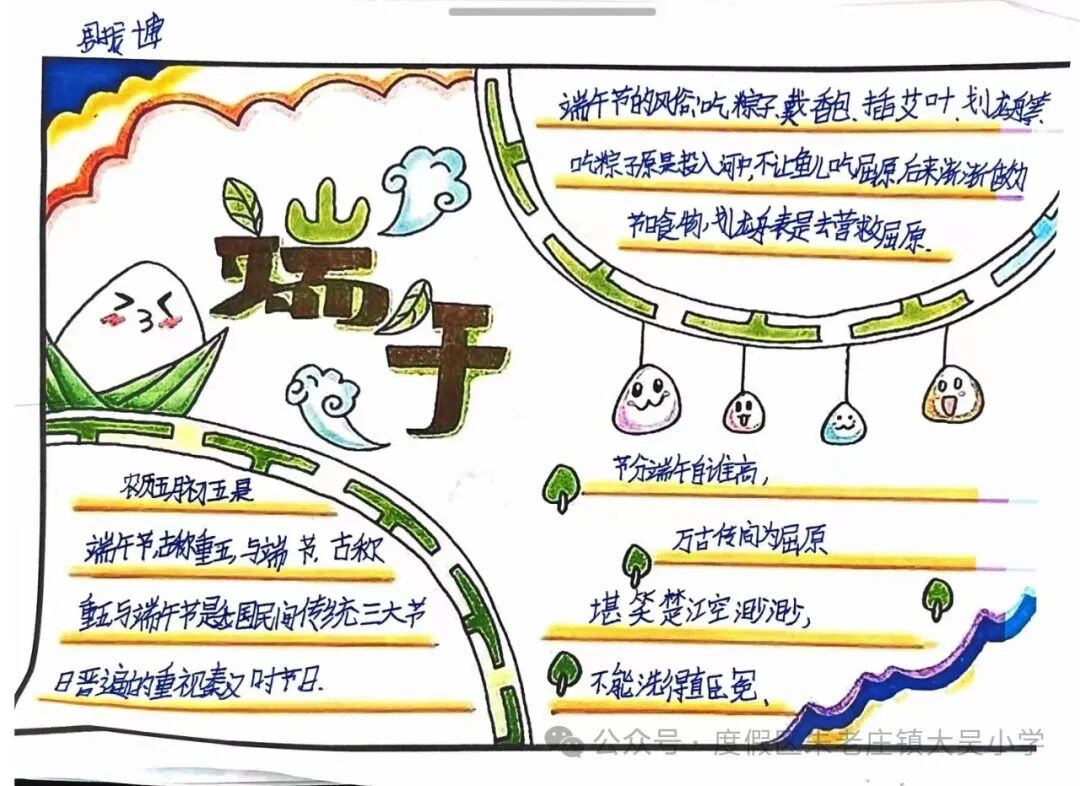 博
端午
端午节的风俗:吃粽子、戴香包、插艾叶、划龙舟等
吃粽子原是投入河中,不让鱼儿吃屈原,后来渐渐做为
节日食物,划龙舟表是去营救屈原.
农历五月初五是
端午节,古称重五,与端 节. 古称
重五与端午节是我国民间传统三大节
日普遍的重视秦汉时节日.
节分端午自谁高,
万古传闻为屈原
堪笑楚江空渺渺,
不能洗得直臣冤、
公众号·度假区朱老庄镇大吴小学